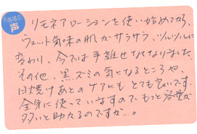 声
リモネアローションを使い始めてから、
ウェット気味の肌がサラサラ、ツルツルに
変わり、今では手離せなくなりました。
その他、黒ズミの気になるところや、
日焼けあとのケアにもとても良いです。
全身に使っていますので、もっと容量が
多いと助かるのですが。